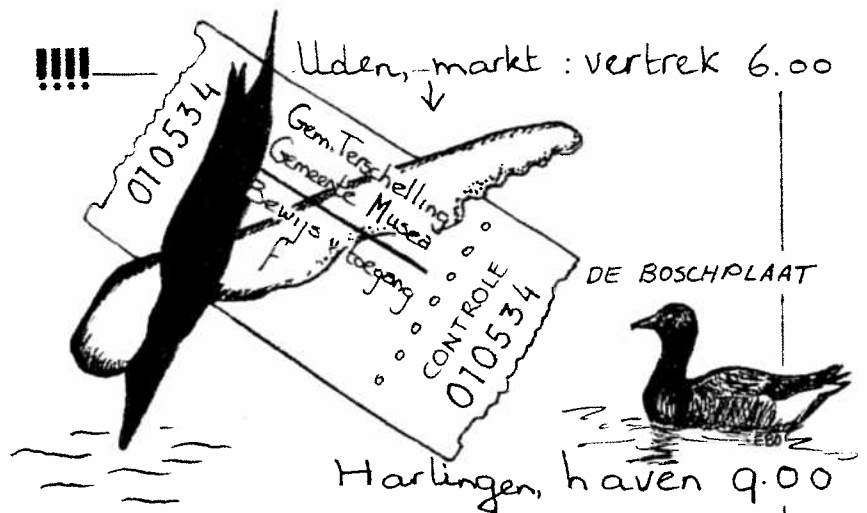 !!!! Uden, markt : vertrek 6.00
010534
Gem. Terschelling
Gemeente Musea
Bewijs v toegang
F
CONTROLE
010534
DE BOSCHPLAAT
EBO
Harlingen, haven 9.00